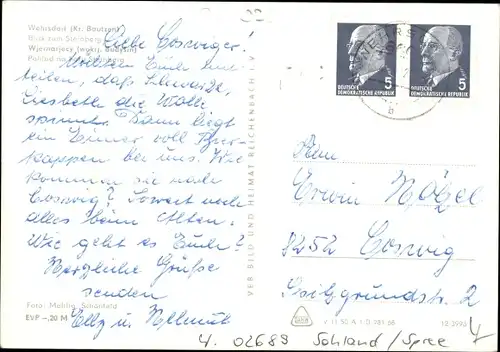 Wehrsdorf (Kr. Bautzen)
Blick zum Steinberg
Wjernarjecy (wokrj. Budyšin)
Pohlad na
Liebe Coswiger!
Wollten Euch mit-
teilen, daß Schwarze,
Liesbeth die Wolle
spinnt. Dann liegt
ein Eimer voll
kappen bei uns. Wie
kommen sie nach
Coswig? Sonst noch
alles beim Alten.
Wie geht es Euch?
Herzliche Grüße
senden
Elly u. Helmut
Foto:
EVP -,20 M
VEB BILD UND HEIMAT REICHENBACH I. V.
DEUTSCHE DEMOKRATISCHE REPUBLIK 5
DEUTSCHE DEMOKRATISCHE REPUBLIK 5
b
Fam.
Erwin Nötzel
8252 Coswig
Spitzgrundstr. 2
V 11 50 A 1 D 984 68
12 2993
4. 02689 Sohland/Spree